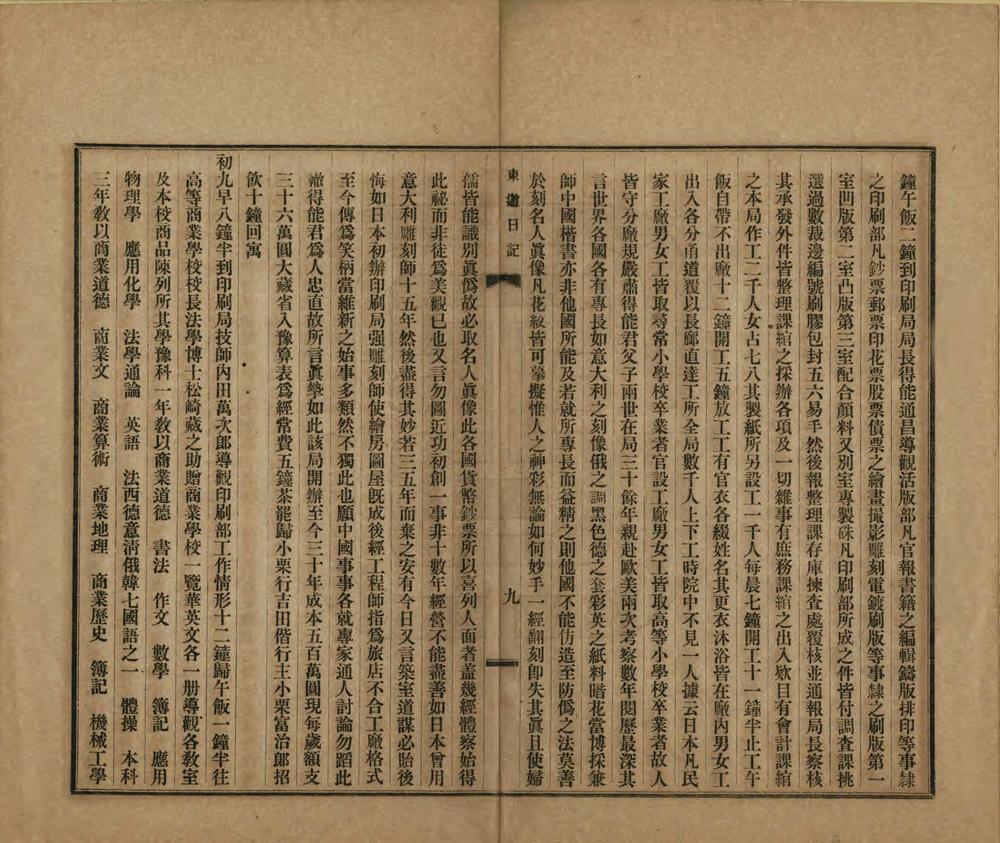 鐘午飯二鐘到印刷局局長得能通昌導觀活版部凡官報書籍之編輯鑄版排印等事隸
之印刷部凡鈔票郵票印花票股票債票之繪畫撮影雕刻電鍍刷版等事隸之刷版第一
室凹版第二室凸版第三室配合顏料又別室專製硃凡印刷部所成之件皆付調査課挑
選過數裁邊編號刷膠包封五六易手然後報整理課存庫揀査處覆核並通報局長察核
其承發外件皆整理課綰之採辦各項及一切雜事有庶務課綰之出入欵目有會計課綰
之本局作工二千人女占七八其製紙所另設工一千人每晨七鐘開工十一鐘半止工午
飯自帶不出廠十二鐘開工五鐘放工工有官衣各綴姓名其更衣沐浴皆在廠內男女工
出入各分甬道覆以長廊直達工所全局數千人上下工時院中不見一人據云日本凡民
家工廠男女工皆取尋常小學校卒業者官設工廠男女工皆取高等小學校卒業者故人
皆守分廠規嚴肅得能君父子兩世在局三十餘年親赴歐美兩次考察數年閱歷最深其
言世界各國各有專長如意大利之刻像俄之調黑色德之套彩英之紙料暗花當博採兼
師中國楷書亦非他國所能及若就所專長而益精之則他國不能仿造至防僞之法莫善
於刻名人眞像凡花紋皆可摹擬惟人之神彩無論如何妙手一經翻刻卽失其眞且使婦
東遊日記
九
孺皆能識別眞僞故必取名人眞像此各國貨幣鈔票所以喜列人面者蓋幾經體察始得
此祕而非徒爲美觀已也又言勿圖近功初創一事非十數年經營不能盡善如日本曾用
意大利雕刻師十五年然後盡得其妙若三五年而棄之安有今日又言築室道謀必貽後
悔如日本初辦印刷局强雕刻師使繪房圖屋旣成後經工程師指爲旅店不合工廠格式
至今傳爲笑柄當維新之始事多類然不獨此也願中國事事各就專家通人討論勿蹈此
轍得能君爲人忠直故所言眞摯如此該局開辦至今三十年成本五百萬圓現每歲額支
三十六萬圓大藏省入豫算表爲經常費五鐘茶罷歸小栗行吉田偕行主小栗富治郞招
飮十鐘回寓
初九早八鐘半到印刷局技師內田萬次郞導觀印刷部工作情形十二鐘歸午飯一鐘半往
高等商業學校校長法學博士松崎藏之助贈商業學校一覽華英文各一册導觀各敎室
及本校商品陳列所其學豫科一年敎以商業道德　書法　作文　數學　簿記　應用
物理學　應用化學　法學通論　英語　法西德意淸俄韓七國語之一　體操　本科
三年敎以商業道德　商業文　商業算術　商業地理　商業歷史　簿記　機械工學